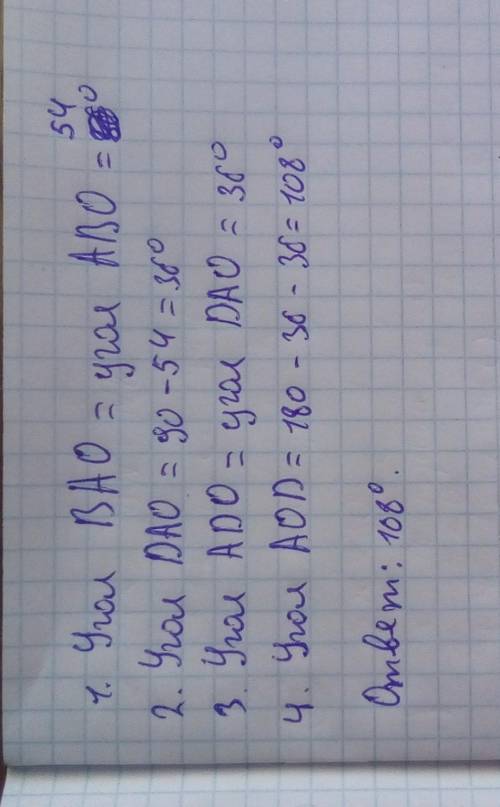 1. Угол BAO = угол ABO = 54°
2. Угол DAO = 90 - 54 = 36°
3. Угол ADO = угол DAO = 36°
4. Угол AOD = 180 - 36 - 36 = 108°
Ответ: 108°.